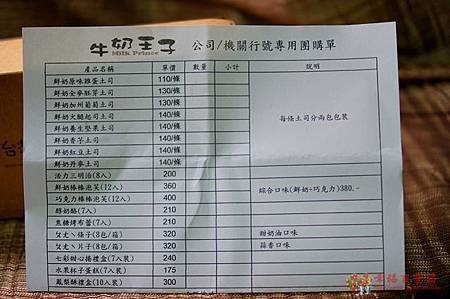 牛奶王子 公司/機關行號專用團購單
Milk Prince
產品名稱 單價 數量 小計 說明
鮮奶原味雞蛋土司 110/條
鮮奶全麥胚芽土司 130/條
鮮奶加州葡萄土司 130/條
鮮奶火腿起司土司 140/條
鮮奶養生堅果土司 140/條 每條土司分兩包包裝
鮮奶香芋土司 140/條
鮮奶紅豆土司 140/條
鮮奶丹麥土司 140/條
活力三明治(8入) 200
鮮奶棒棒泡芙(12入) 360 綜合口味(鮮奶+巧克力)380.-
巧克力棒棒泡芙(12入) 400
醇奶酪(7入) 210
焦糖烤布蕾(7入) 210
ㄆㄤˋ條子(8包/箱) 320 甜奶油口味
ㄆㄤˋ片子(8包/箱) 320 蒜香口味
七彩甜心捲禮盒(7入裝) 240
水果杯子蛋糕(7入裝) 175
鳳梨酥禮盒(10入裝) 300